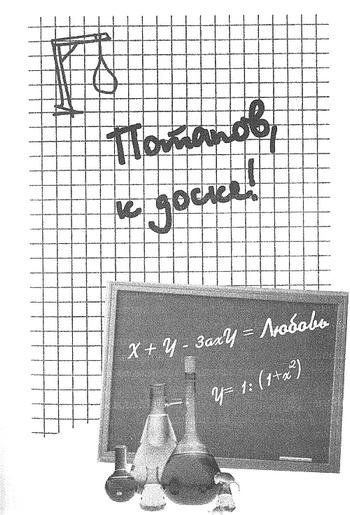 Потапов,
к доске!
X + У - ЗахУ = Любовь
У = 1 : (1+x²)